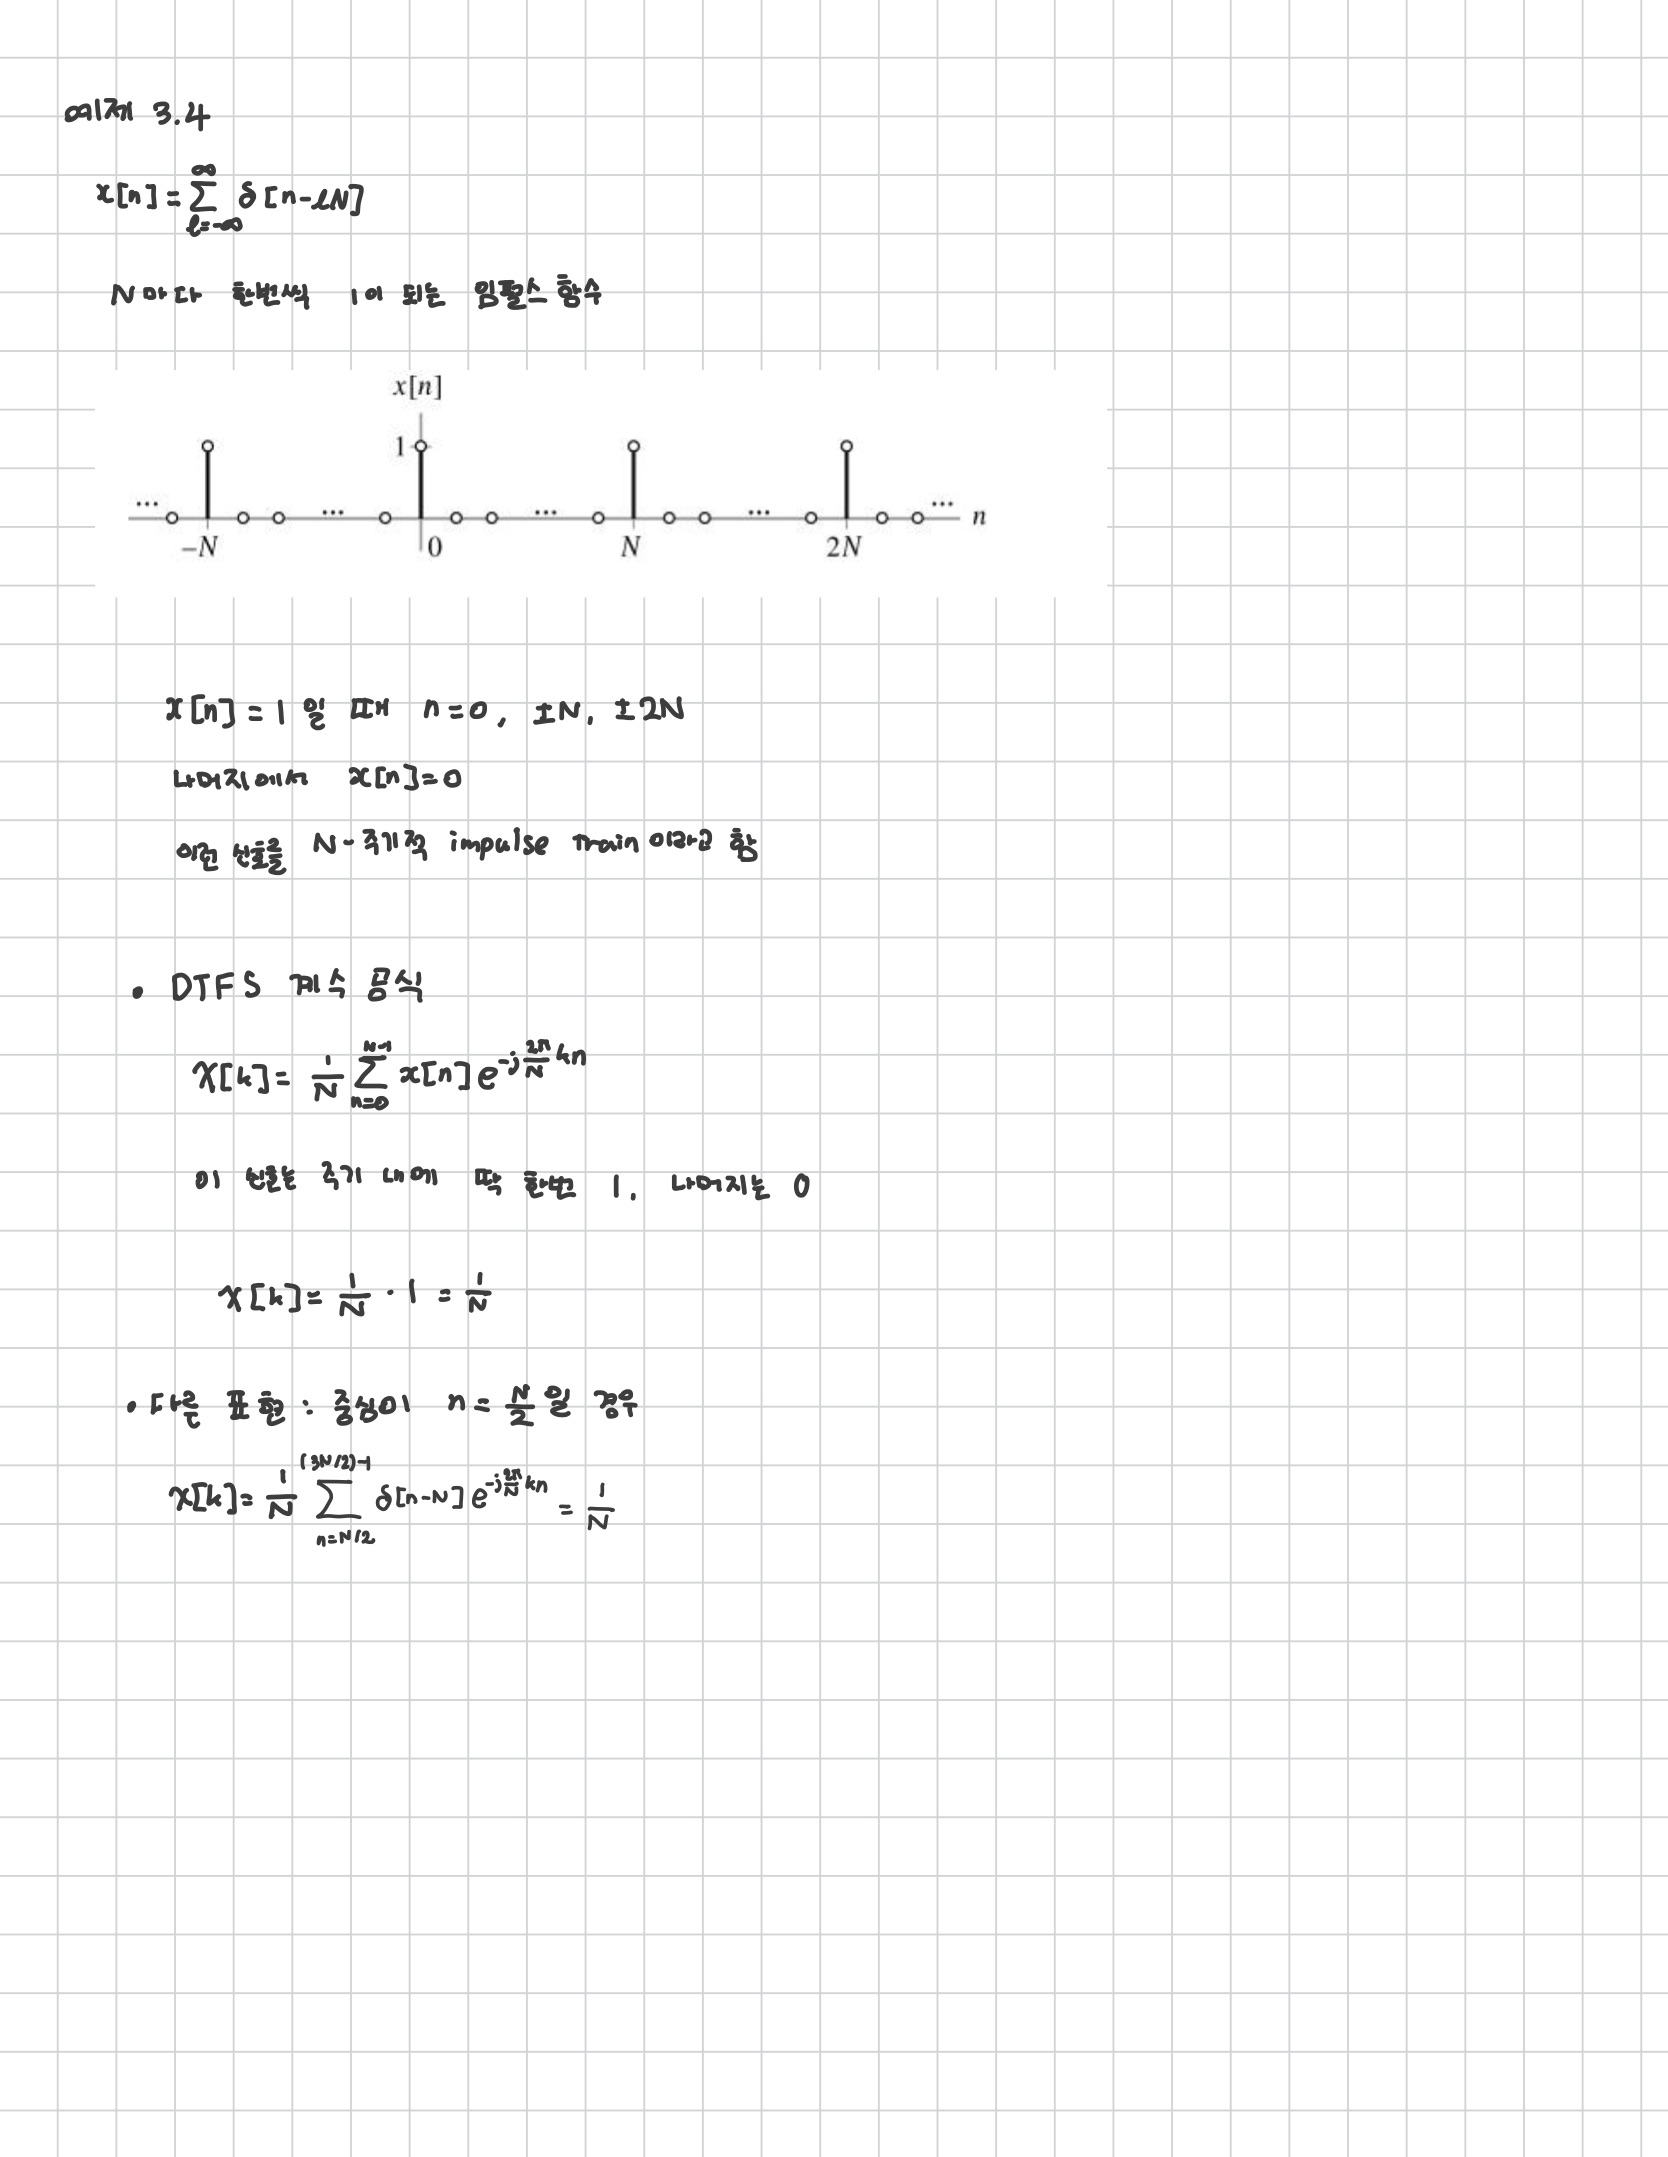 예제 3.4
x[n] = ∑_{ℓ=-∞}^{∞} δ[n-ℓN]
N 마다 한번씩 1이 되는 임펄스 함수
x[n]
1
... ... ... ... ... n
-N 0 N 2N
x[n] = 1 일 때 n=0, ±N, ±2N
나머지에서 x[n]=0
이런 신호를 N-주기적 impulse train 이라고 함
• DTFS 계수 공식
X[k] = \frac{1}{N} ∑_{n=0}^{N-1} x[n] e^{-j\frac{2π}{N}kn}
이 신호는 주기 내에 딱 한번 1, 나머지는 0
X[k] = \frac{1}{N} · 1 = \frac{1}{N}
• 다른 표현 : 중심이 n = \frac{N}{2} 일 경우
X[k] = \frac{1}{N} ∑_{n=N/2}^{(3N/2)-1} δ[n-N] e^{-j\frac{2π}{N}kn} = \frac{1}{N}